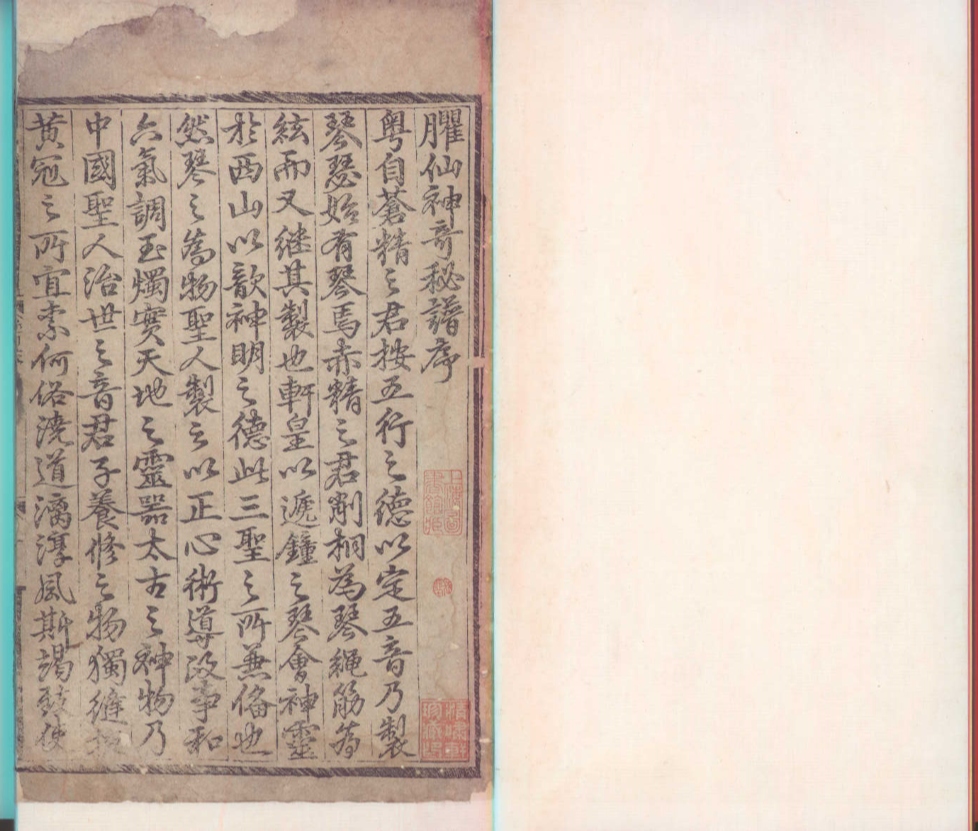 臞仙神奇秘譜序
粤自蒼精之君按五行之德以定五音乃製
琴瑟始有琴焉赤精之君削桐為琴繩筋為
絃而又継其製也軒皇以遞鐘之琴會神靈
於西山以歆神明之德此三聖之所兼俻也
然琴之為物聖人製之以正心術導政事和
六氣調玉燭實天地之靈噐太古之神物乃
中國聖人治世之音君子養修之物獨縫掖
黄冠之所宜柰何俗澆道漓淳風斯竭致使